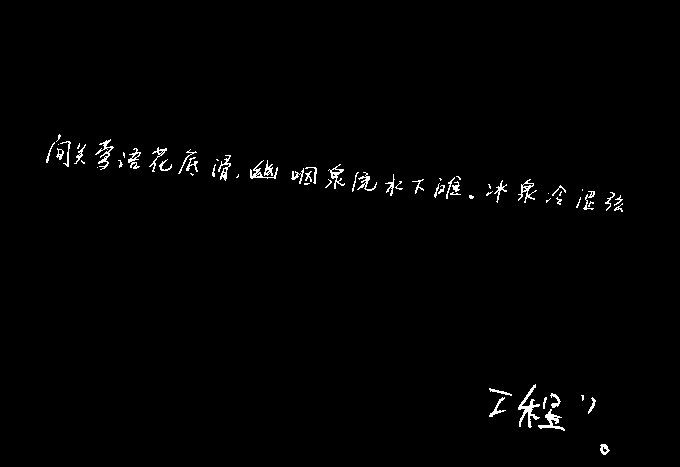 间关莺语花底滑，幽咽泉流水下滩。冰泉冷涩弦
工程”。